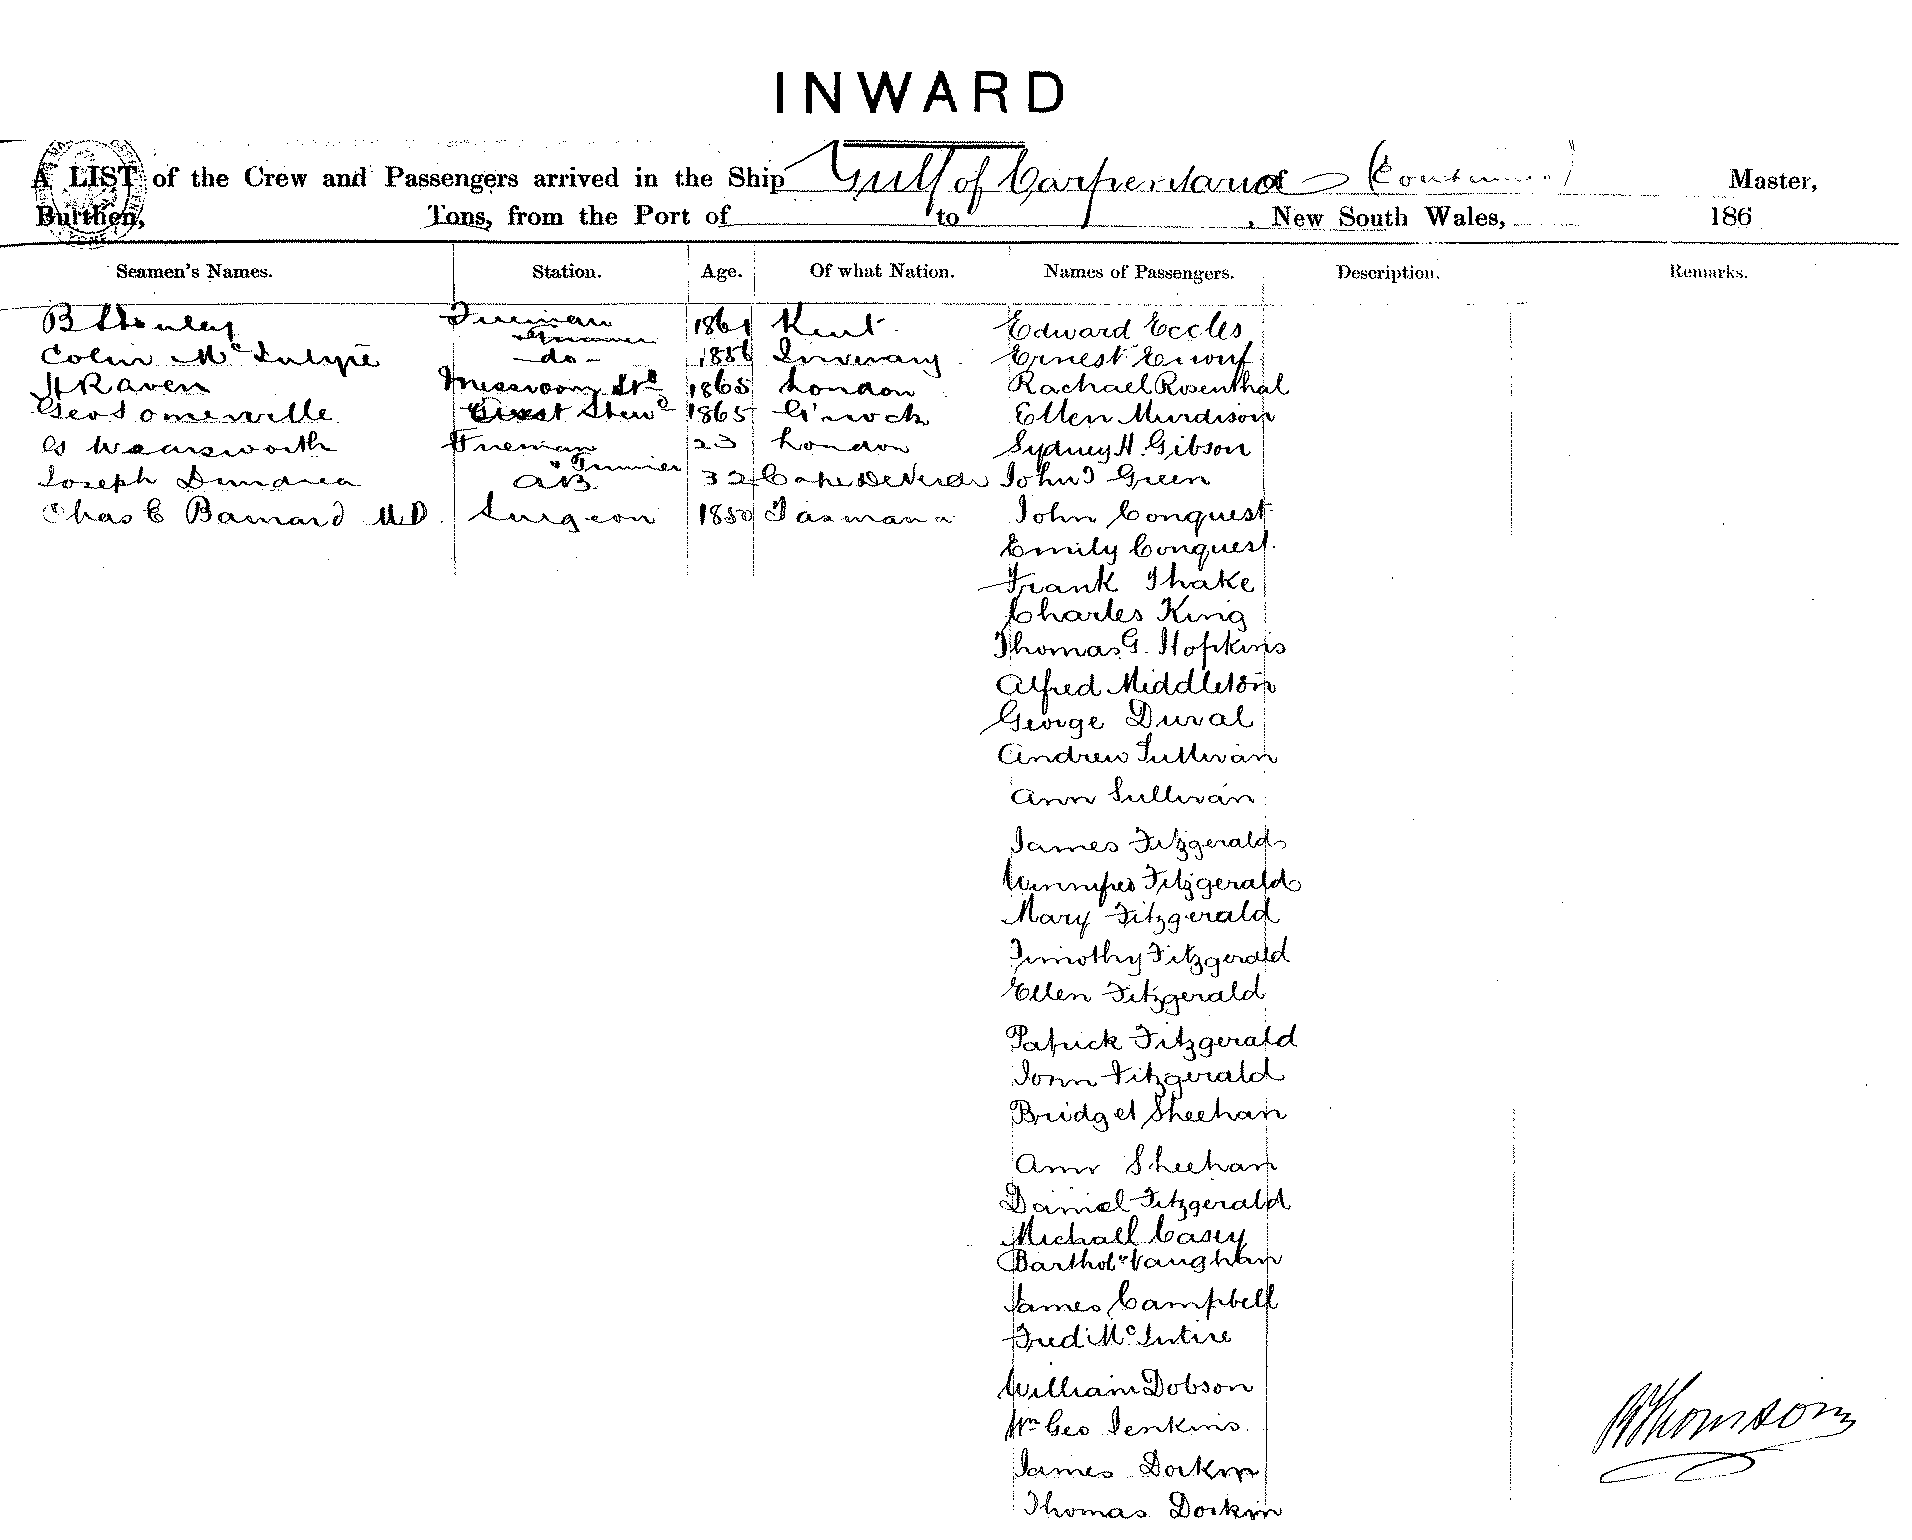 INWARD
A LIST of the Crew and Passengers arrived in the Ship Gulf of Carpentaria (Continued) Master,
Burthen, Tons, from the Port of to , New South Wales, 186
Seamen's Names. Station. Age. Of what Nation. Names of Passengers. Description. Remarks.
B Stanley Fireman 1861 Kent Edward Eccles
Trimmer
Colin McIntyre -do- 1886 Inverary Ernest
H Raven Messroom Std 1865 London Rachael Rosenthal
Geo Somerville Stewd 1865 G'nock Ellen Murdison
G Wearsworth Fireman 23 London Sydney H. Gibson
" Trimmer
Joseph AB 32 Cape De Verde John J Green
Chas E Barnard M.D. Surgeon 1850 Tasmania John Conquest
Emily Conquest
Frank Thake
Charles King
Thomas G. Hopkins
Alfred Middleton
George Duval
Andrew Sullivan
Ann Sullivan
James Fitzgerald
Winnifred Fitzgerald
Mary Fitzgerald
Timothy Fitzgerald
Ellen Fitzgerald
Patrick Fitzgerald
John Fitzgerald
Bridget Sheehan
Ann Sheehan
Daniel Fitzgerald
Michall Casey
Tharthol Vaughan
James Campbell
Fred McIntire
William Dobson
Wm Geo Jenkins
James Dorkin
Thomas Dorkin
Thomson